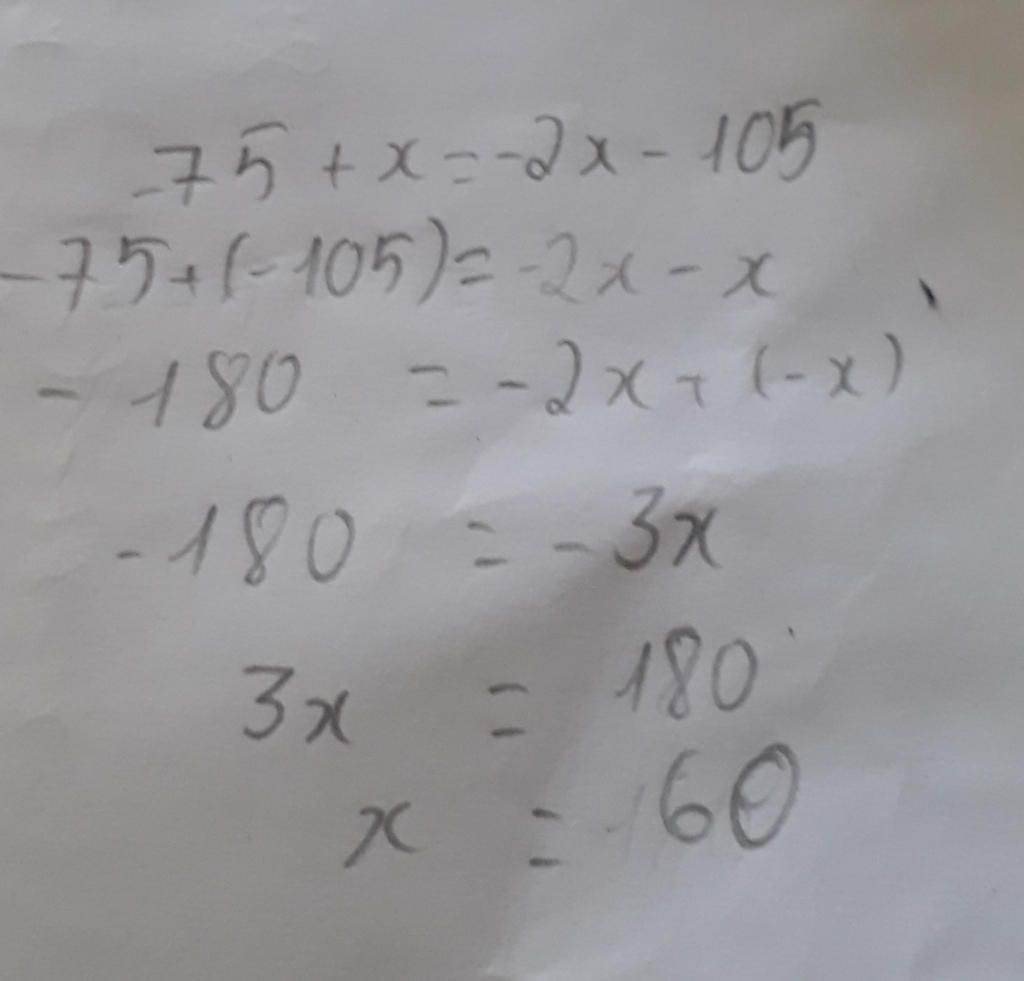 -75 + x = -2x - 105
-75 + (-105) = -2x - x
- 180 = -2x + (-x)
- 180 = - 3x
3x = 180
x = 60